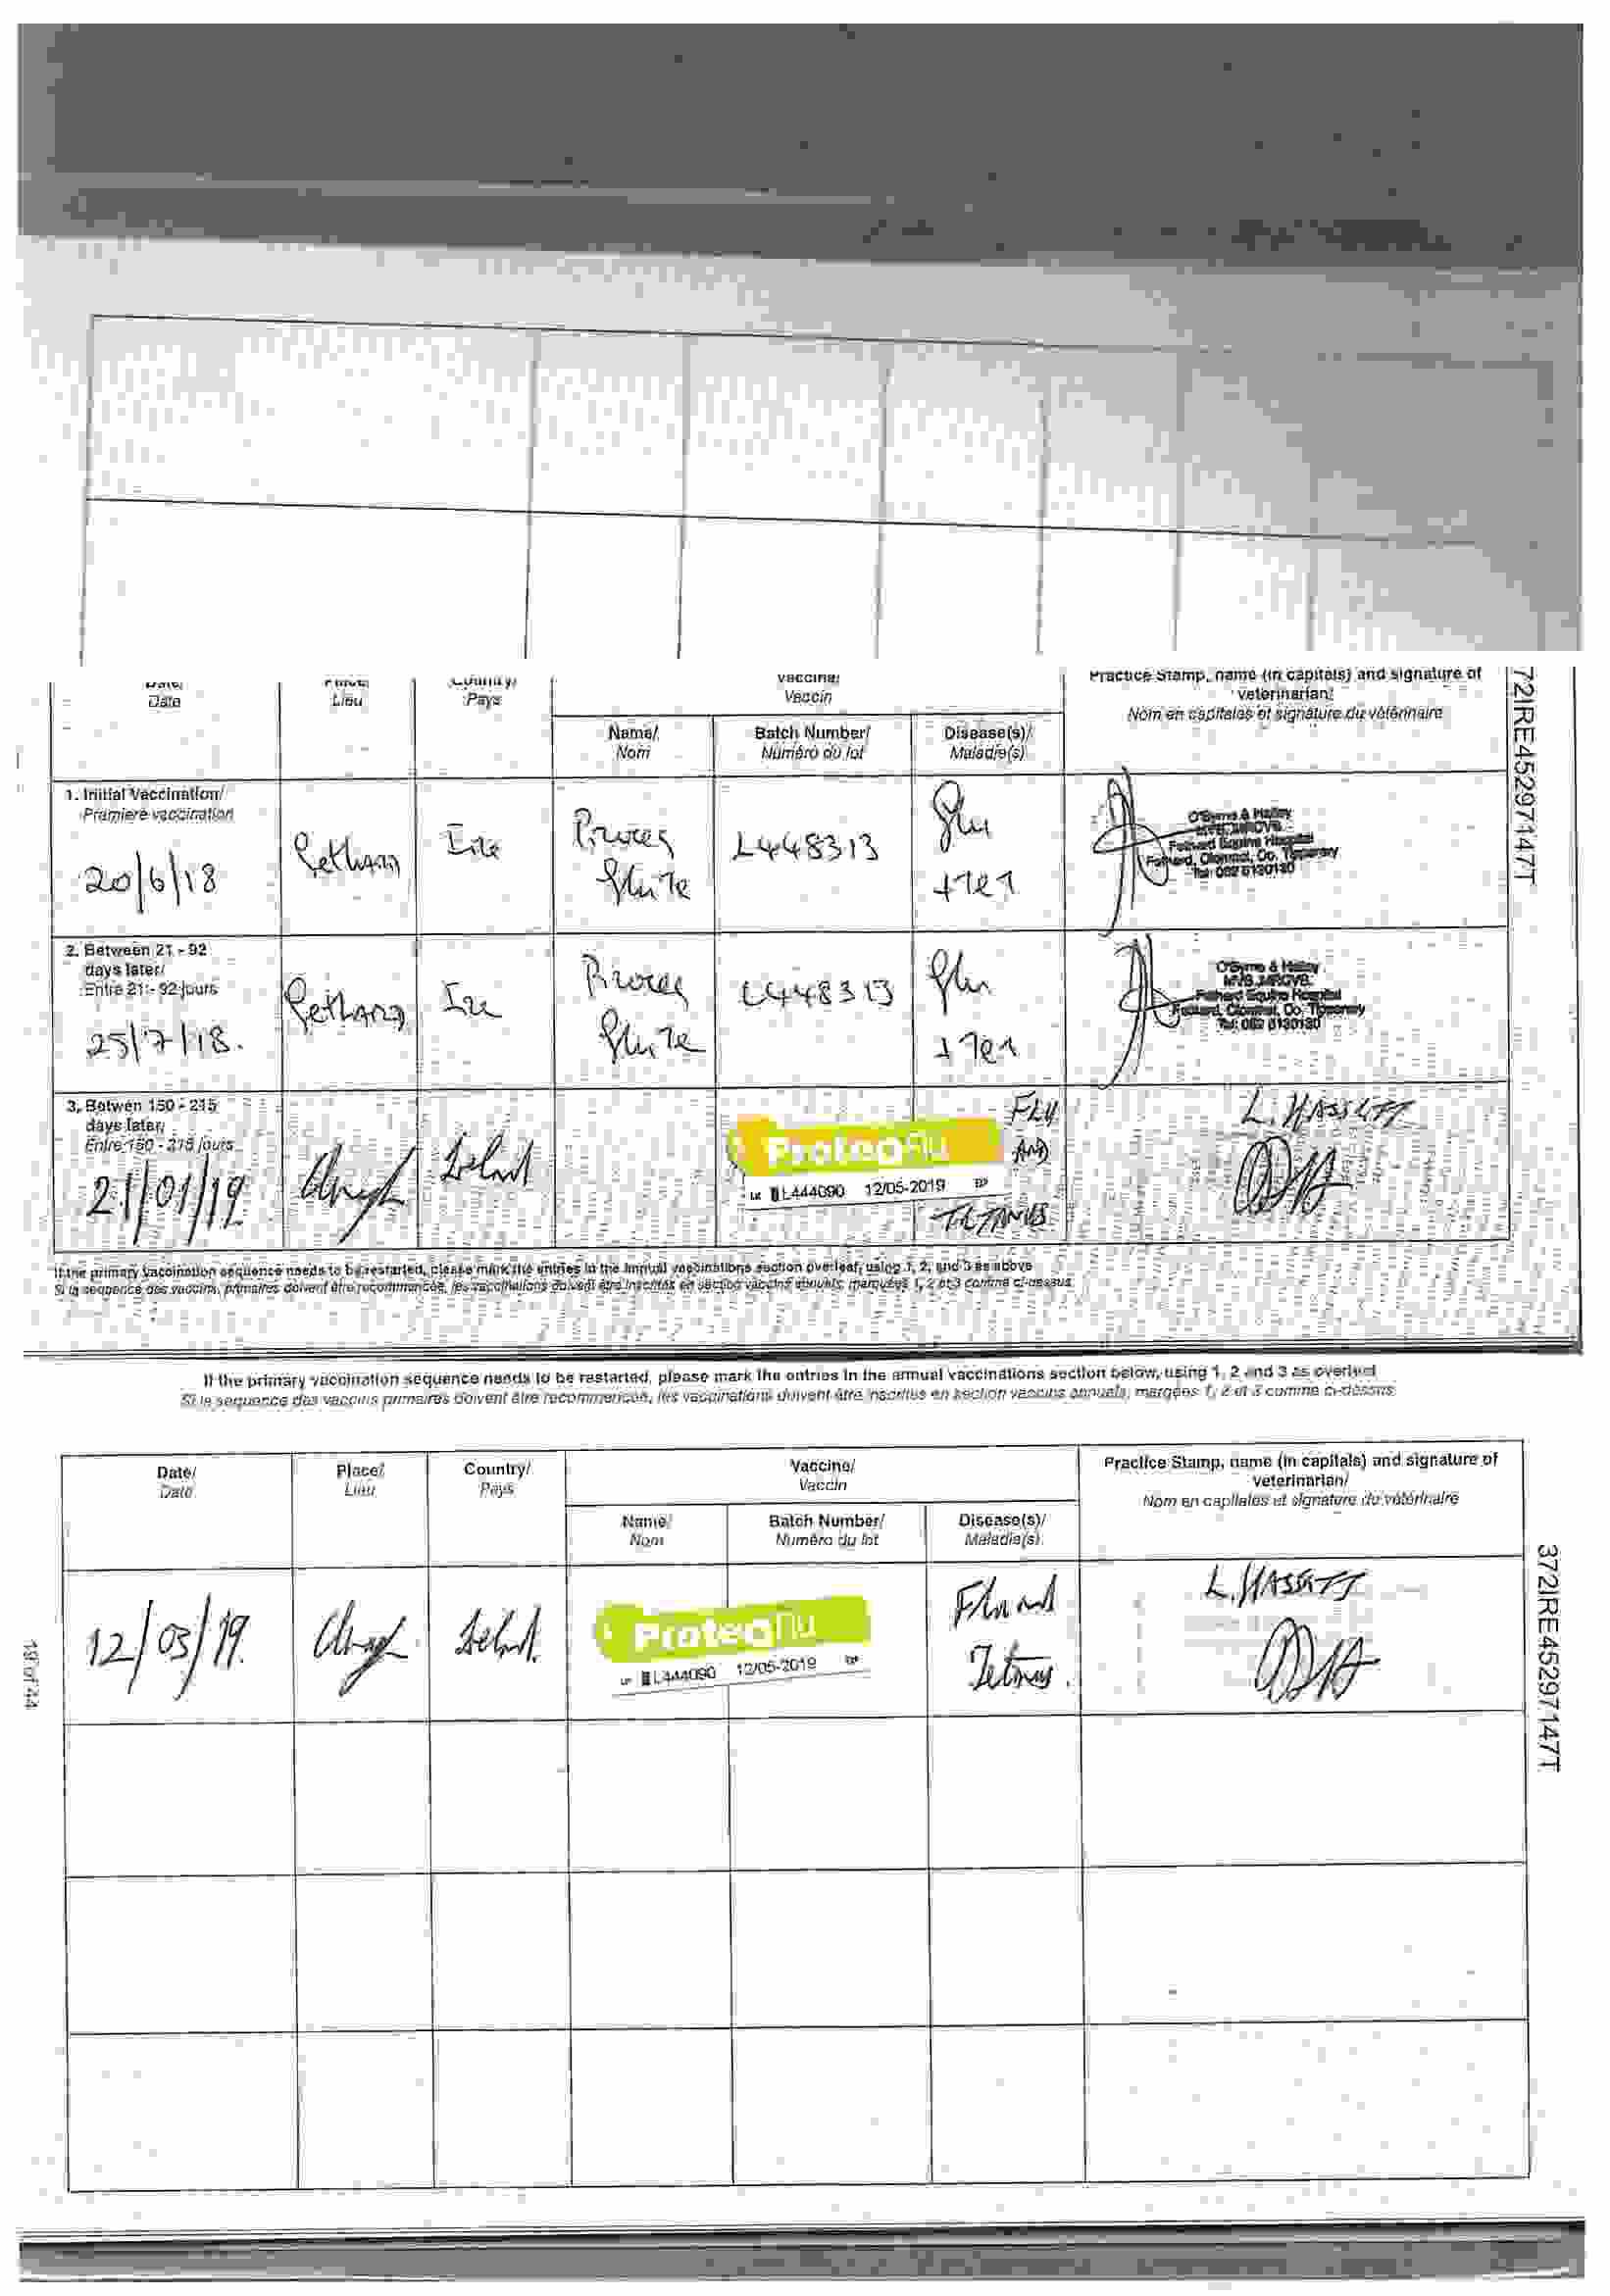 Date/
Date
Place/
Lieu
Country/
Pays
Vaccine/
Vaccin
Practice Stamp, name (in capitals) and signature of
veterinarian/
Nom en capitales et signature du vétérinaire
Name/
Nom
Batch Number/
Numéro du lot
Disease(s)/
Maladie(s)
72IRE45297147T
1. Initial Vaccination/
Première vaccination
20/6/18
Fethard
Ire
L448313
Flu
+Tet
O'Byrne & Halley
MVB, MRCVS
Fethard Equine Hospital
Fethard, Clonmel, Co. Tipperary
Tel: 052 6130130
2. Between 21 - 92
days later/
Entre 21 - 92 jours
25/7/18.
Fethard
Ire
L448313
Flu
+Tet
O'Byrne & Halley
MVB, MRCVS
Fethard Equine Hospital
Fethard, Clonmel, Co. Tipperary
Tel: 052 6130130
3. Betwen 150 - 215
days later/
Entre 150 - 215 jours
21/01/19
Ireland
ProteqFlu
L444090 12/05-2019
FLU
AND
TETANUS
L. HASSETT
If the primary vaccination sequence needs to be restarted, please mark the entries in the annual vaccinations section overleaf, using 1, 2, and 3 as above
Si la sequence des vaccins primaires doivent être recommencée, les vaccinations doivent être inscrites en section vaccins annuels, marquées 1, 2 et 3 comme ci-dessus
If the primary vaccination sequence needs to be restarted, please mark the entries in the annual vaccinations section below, using 1, 2 and 3 as overleaf
Si la sequence des vaccins primaires doivent être recommencée, les vaccinations doivent être inscrites en section vaccins annuels, margées 1, 2 et 3 comme ci-dessus
Date/
Date
Place/
Lieu
Country/
Pays
Vaccine/
Vaccin
Practice Stamp, name (in capitals) and signature of
veterinarian/
Nom en capitales et signature du vétérinaire
Name/
Nom
Batch Number/
Numéro du lot
Disease(s)/
Maladie(s)
12/03/19.
Ireland.
ProteqFlu
L444090 12/05-2019
Flu and
Tetanus.
L. HASSETT
372IRE45297147T
19 of 44